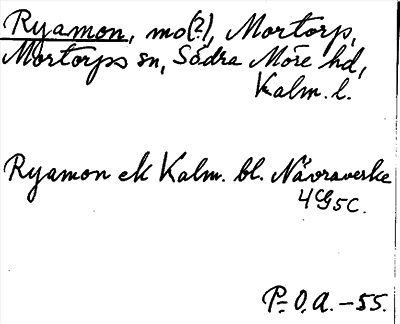 Ryamon, mo(?), Mortorp,
Mortorps sn, Södra Möre hd,
Kalm. l.
Ryamon ek Kalm. bl. Nävraverke
4G5c.
P. O. A. - 55.